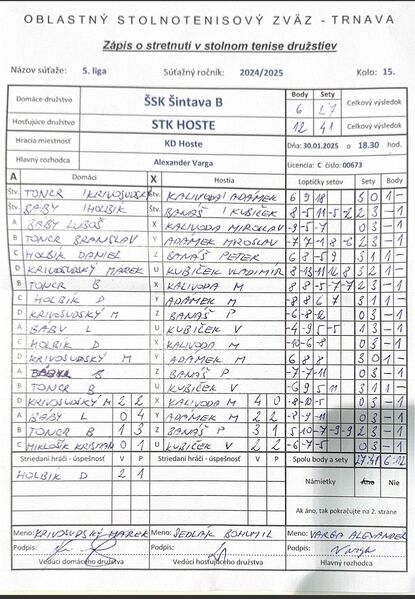 OBLASTNÝ STOLNOTENISOVÝ ZVÄZ - TRNAVA
Zápis o stretnutí v stolnom tenise družstiev
Názov súťaže: 5. liga Súťažný ročník: 2024/2025 Kolo: 15.
Domáce družstvo ŠSK Šintava B Body Sety 6 27 Celkový výsledok
Hosťujúce družstvo STK HOSTE 12 41 Celkový výsledok
Hracia miestnosť KD Hoste Dňa: 30.01.2025 o 18.30 hod.
Hlavný rozhodca Alexander Varga Licencia: C číslo: 00673
A Domáci X Hostia Loptičky setov Sety Body
Štv. TONCR KRIVOSUDSKÝ Štv. KALIVODA ADÁMEK 6 9 18 3 0 1 -
Štv. BABY HOLBIK Štv. BANÁŠ KUBIČEK 8 -5 11 -5 -2 2 3 - 1
A BABY LUBOŠ X KALIVODA MIROSLAV -9 -5 -7 0 3 - 1
B TONCR BRANISLAV Y ADÁMEK MIROSLAV -7 -7 18 -6 2 3 - 1
C HOLBIK DANIEL Z BANÁŠ PETER 6 8 -5 9 3 1 1 -
D KRIVOSUDSKÝ MAREK U KUBIČEK VLADIMÍR 8 -13 11 -14 8 3 2 1 -
B TONCR B X KALIVODA M 8 8 -5 -7 -7 2 3 - 1
C HOLBIK D Y ADÁMEK M -8 8 6 7 3 1 1 -
D KRIVOSUDSKÝ M Z BANÁŠ P -6 -8 -12 0 3 - 1
A BABY L U KUBIČEK V -4 -9 5 -5 1 3 - 1
C HOLBIK D X KALIVODA M -10 -6 -8 0 3 - 1
D KRIVOSUDSKÝ M Y ADÁMEK M 6 8 8 3 0 1 -
A Z BANÁŠ P -7 -7 -11 0 3 - 1
B TONCR B U KUBIČEK V -6 9 5 11 3 1 1 -
D KRIVOSUDSKÝ M 2 2 X KALIVODA M 4 0 -8 -10 -5 0 3 - 1
A BABY L 0 4 Y ADÁMEK M 2 2 -8 -9 -11 0 3 - 1
B TONCR B 1 3 Z BANÁŠ P 3 1 5 10 -7 -9 -9 2 3 - 1
C MIKLOŠIK KRISTIAN 0 1 U KUBIČEK V 2 2 -6 -7 -5 0 3 - 1
Striedaní hráči - úspešnosť V P Striedaní hráči - úspešnosť V P Spolu body a sety 27:41 6-12
HOLBIK D 2 1
Námietky Áno Nie
Ak áno, tak pokračujte na 2. strane
Meno: KRIVOSUDSKÝ MAREK Meno: SEDLÁK BOHUMIL Meno: VARGA ALEXANDER
Podpis: Podpis: Podpis: Varga
Vedúci domáceho družstva Vedúci hosťujúceho družstva Hlavný rozhodca